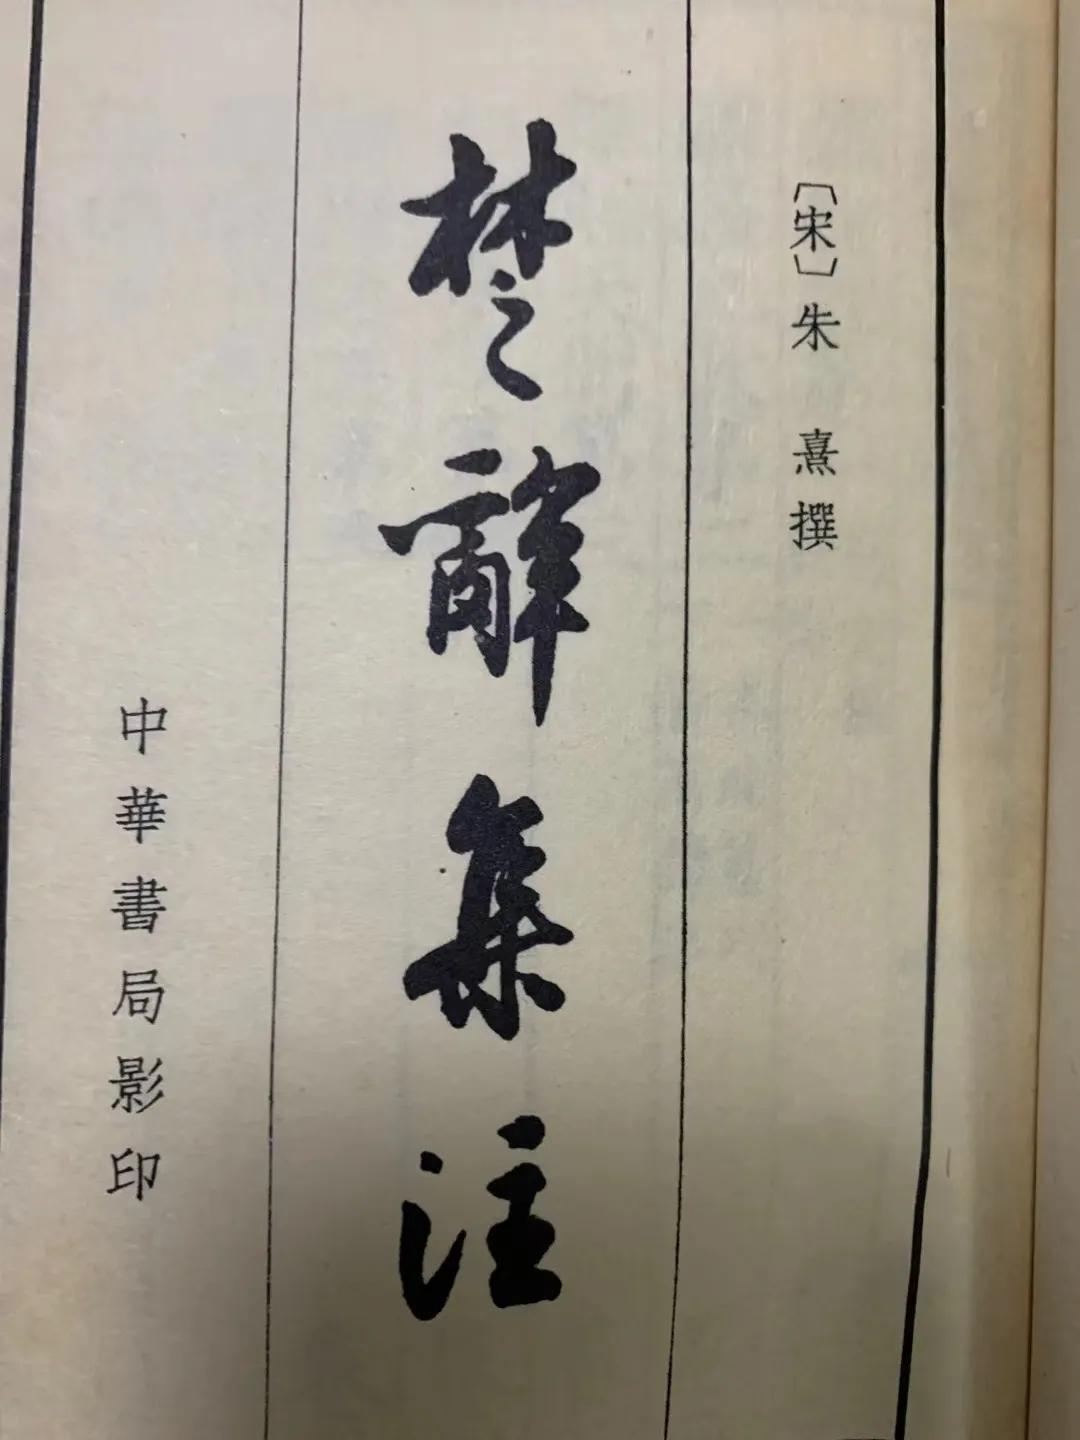 〔宋〕朱熹撰
楚辭集注
中華書局影印